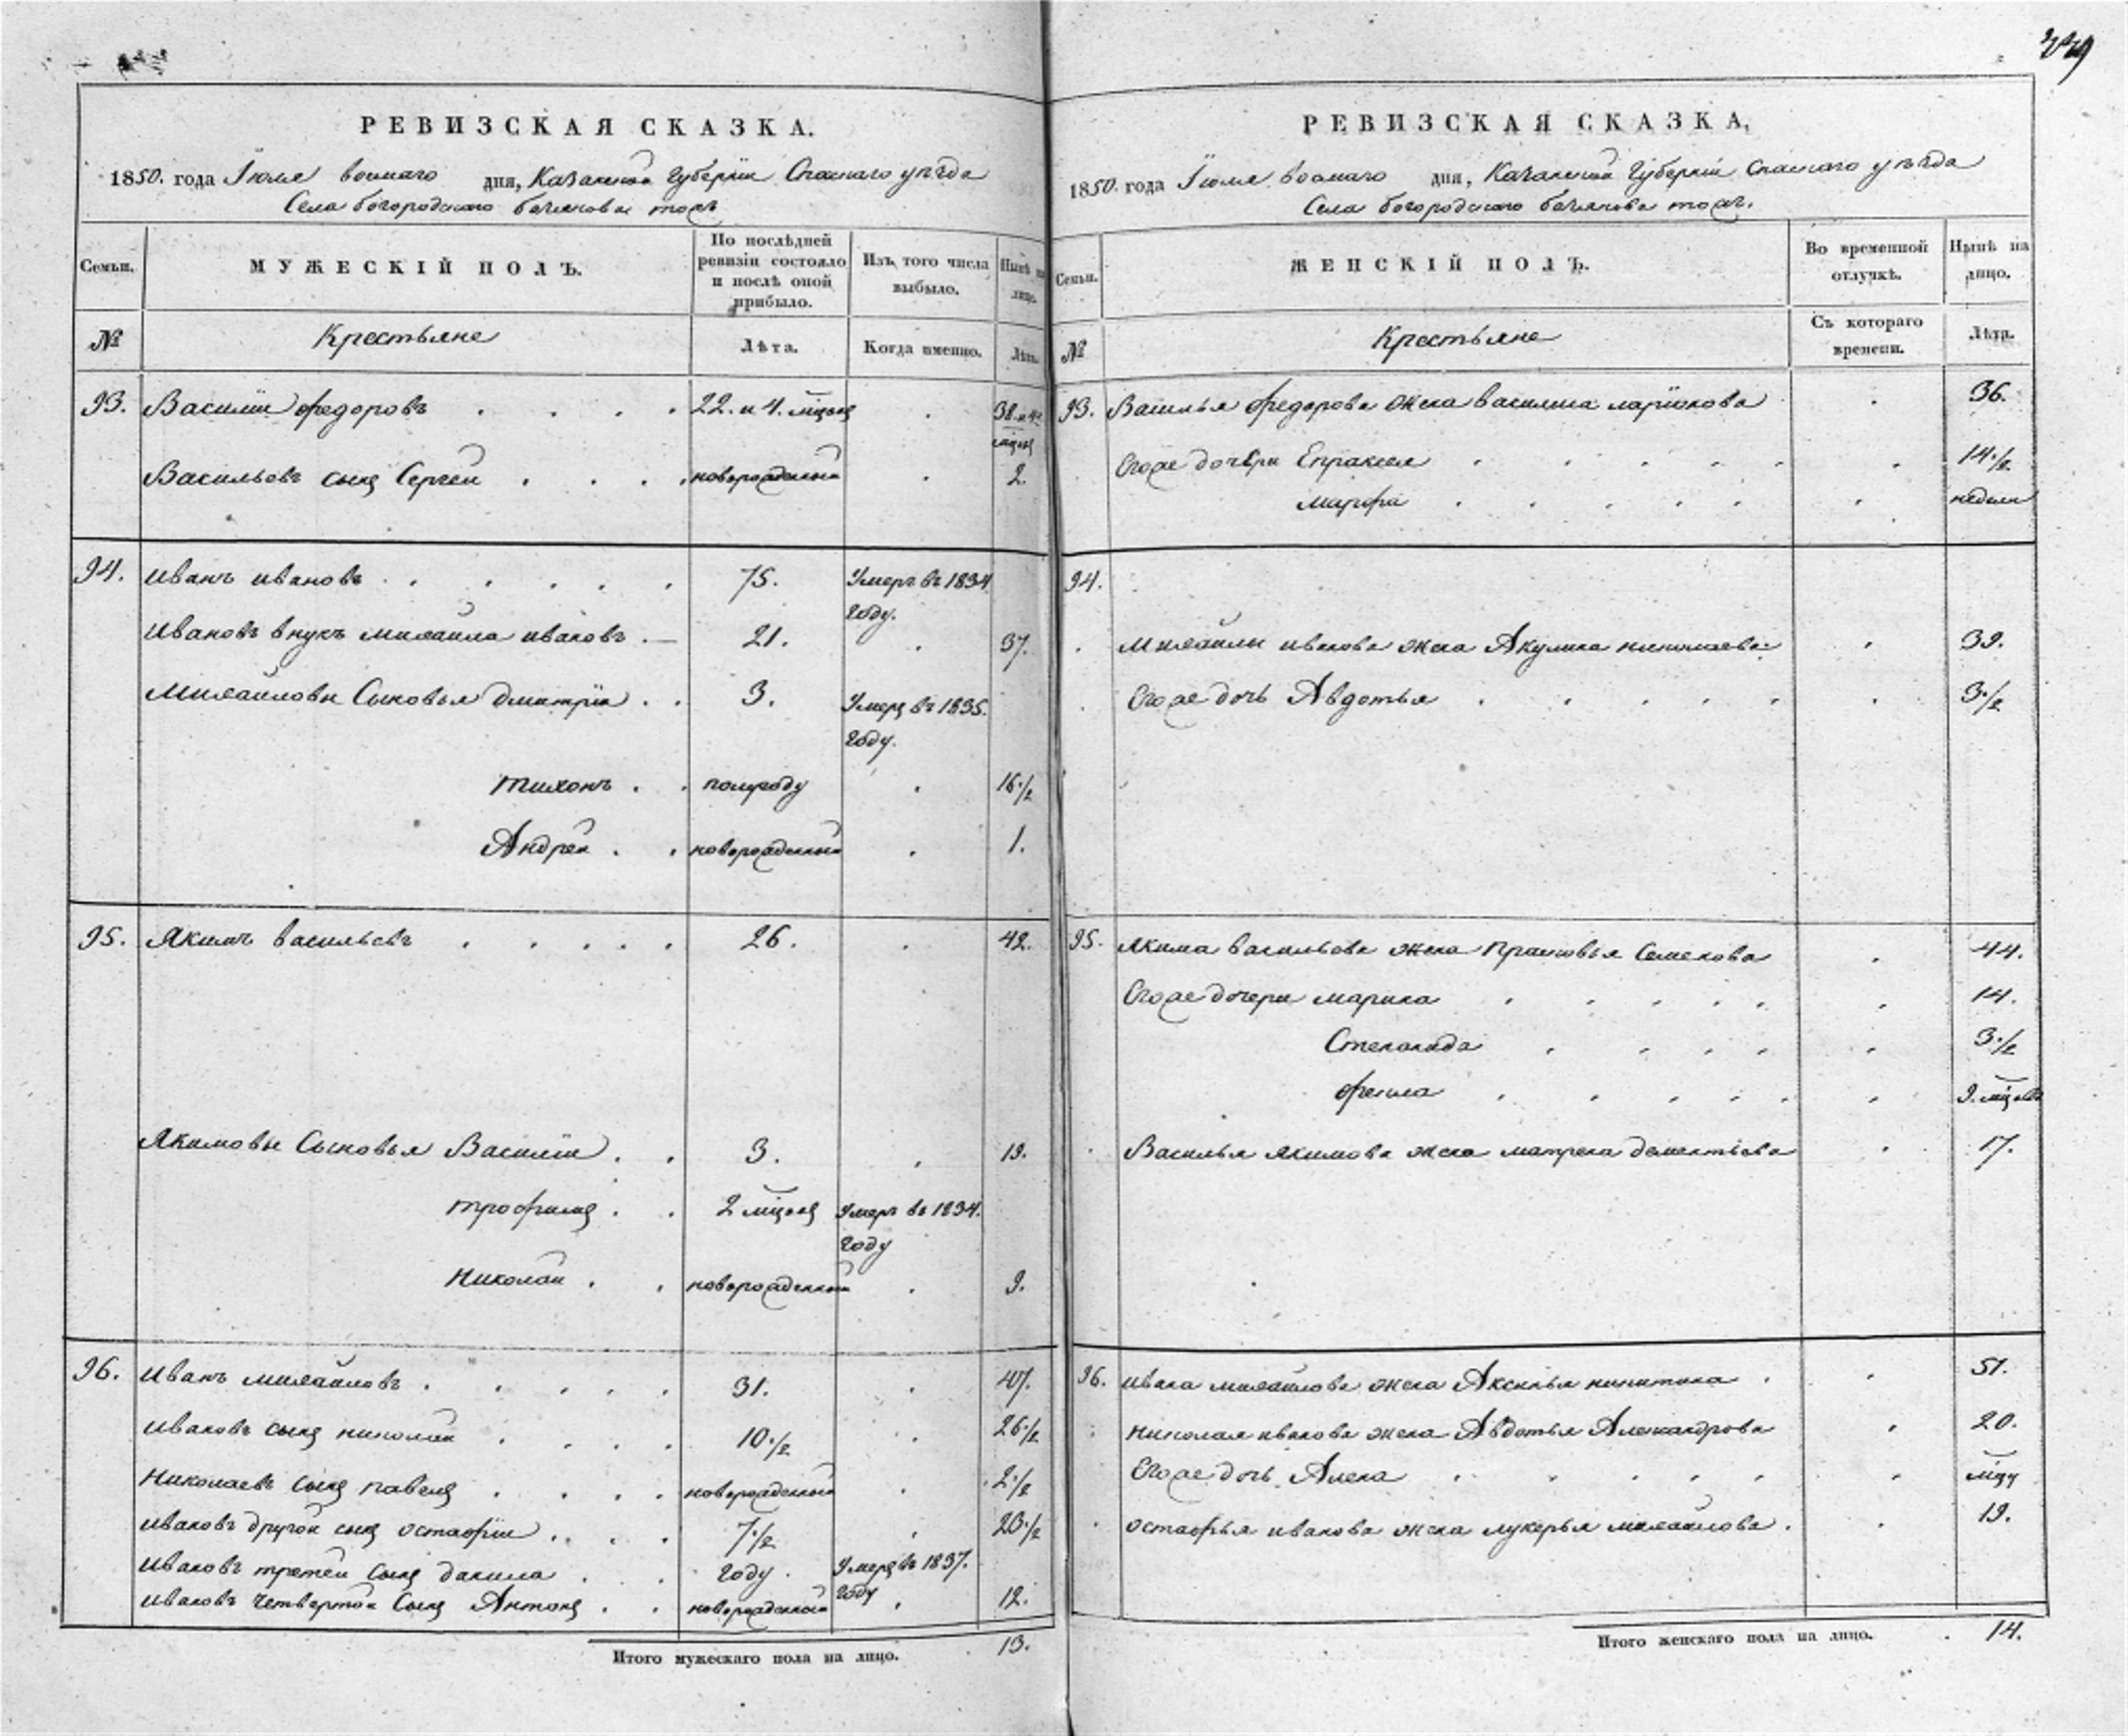 229
РЕВИЗСКАЯ СКАЗКА.
1850. года Іюля восмаго дня, Казанской Губерніи Спаскаго уѣзда
Села богородскаго тожъ
Семьи.
МУЖЕСКІЙ ПОЛЪ.
По послѣдней ревизіи состояло и послѣ оной прибыло.
Изъ того числа выбыло.
Нынѣ на лицо.
№
Крестьяне
Лѣта.
Когда именно.
Лѣта.
93. Василіи федоровъ 22. и 4. мѣсяц 38. и 4
мѣсяц
Васильевъ сынъ Сергеи новорожденныи 2.
94. Иванъ ивановъ 75. Умеръ въ 1834
году.
Ивановъ внукъ михаила ивановъ 21. 37.
Михаиловы Сыновья дмитріи 3. Умеръ въ 1835.
году.
тихонъ полугоду 16 1/2
Андреи новорожденныи 1.
95. Якимъ васильевъ 26. 42.
Якимовы Сыновья Василіи 3. 19.
трофимъ 2 мѣсяц Умеръ въ 1834.
году
Николаи новорожденныи 9.
96. Иванъ михаиловъ 31. 47.
Ивановъ сынъ николаи 10 1/2 26 1/2
Николаевъ сынъ павелъ новорожденныи 2 1/2
Ивановъ другои сынъ остафіи 7 1/2 23 1/2
Ивановъ третеи сынъ данила году. Умеръ въ 1837.
году
Ивановъ четвертои Сынъ Антонъ новорожденныи 12.
Итого мужескаго пола на лицо. 13.
РЕВИЗСКАЯ СКАЗКА,
1850. года Іюля восмаго дня, Казанской Губерніи Спаскаго уѣзда
Села богородскаго тожъ.
Семьи.
ЖЕНСКІЙ ПОЛЪ.
Во временной отлучкѣ.
Нынѣ на лицо.
№
Крестьяне
Съ котораго времени.
Лѣта.
93. Василья федорова жена василиса ларіонова 36.
Егоже дочери Епраксея 14 1/2
марфа недели
94.
Михаилы иванова жена Акулина николаева 39.
Егоже дочь Авдотья 3 1/2
95. Якима васильева жена прасковья Семенова 44.
Егоже дочери марина 14.
Степанида 3 1/2
фекла 9. мѣсяц
Василья якимова жена матрена дементьева 17.
96. ивана михаилова жена Аксинья никитина 51.
николая иванова жена Авдотья Александрова 20.
Егоже дочь Алена мѣцу
остафья иванова жена лукерья михаилова. 19.
Итого женскаго пола на лицо. 14.